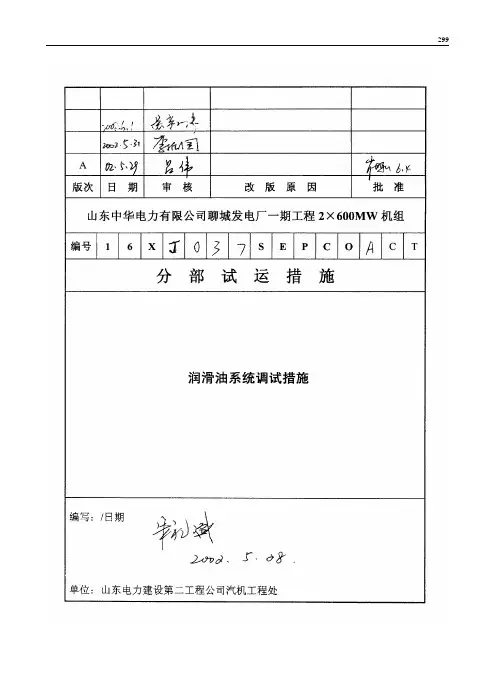 299
2002.5.31
A 02.5.29 吕伟 6.4
版次 日 期 审 核 改 版 原 因 批 准
山东中华电力有限公司聊城发电厂一期工程2×600MW机组
编号 1 6 X J 0 3 7 S E P C O A C T
分 部 试 运 措 施
润滑油系统调试措施
编写：/日期
2002. 5. 28.
单位：山东电力建设第二工程公司汽机工程处